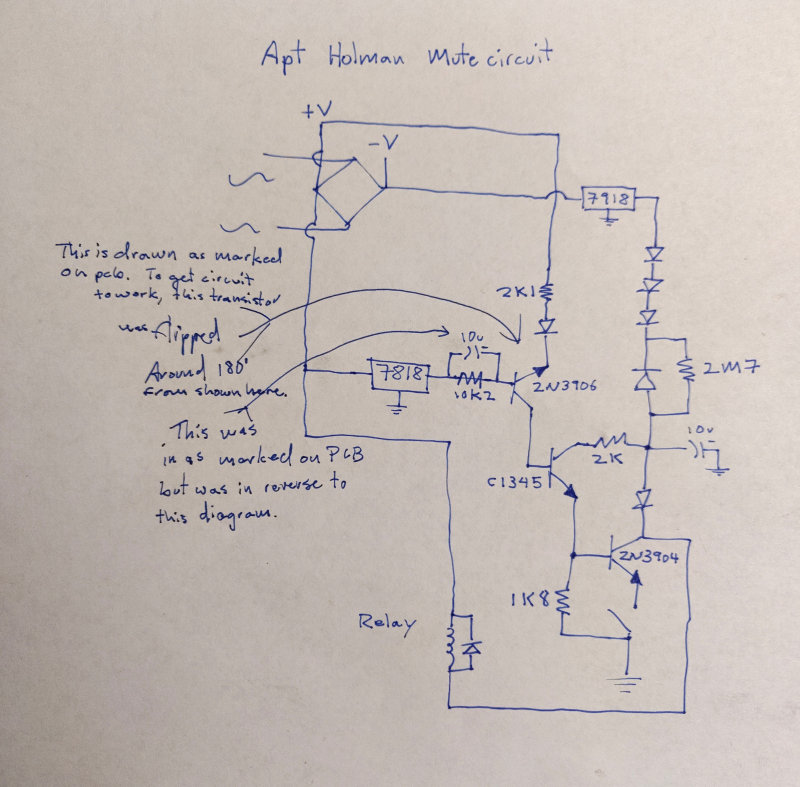 Apt Holman Mute circuit
+V
-V
7918
This is drawn as marked
on pcb. To get circuit
to work, this transistor
was flipped
Around 180°
from shown here.
2K1
10u
7818
10K2
2N3906
2M7
This was
in as marked on PCB
but was in reverse to
this diagram.
10u
2K
C1345
2N3904
1K8
Relay